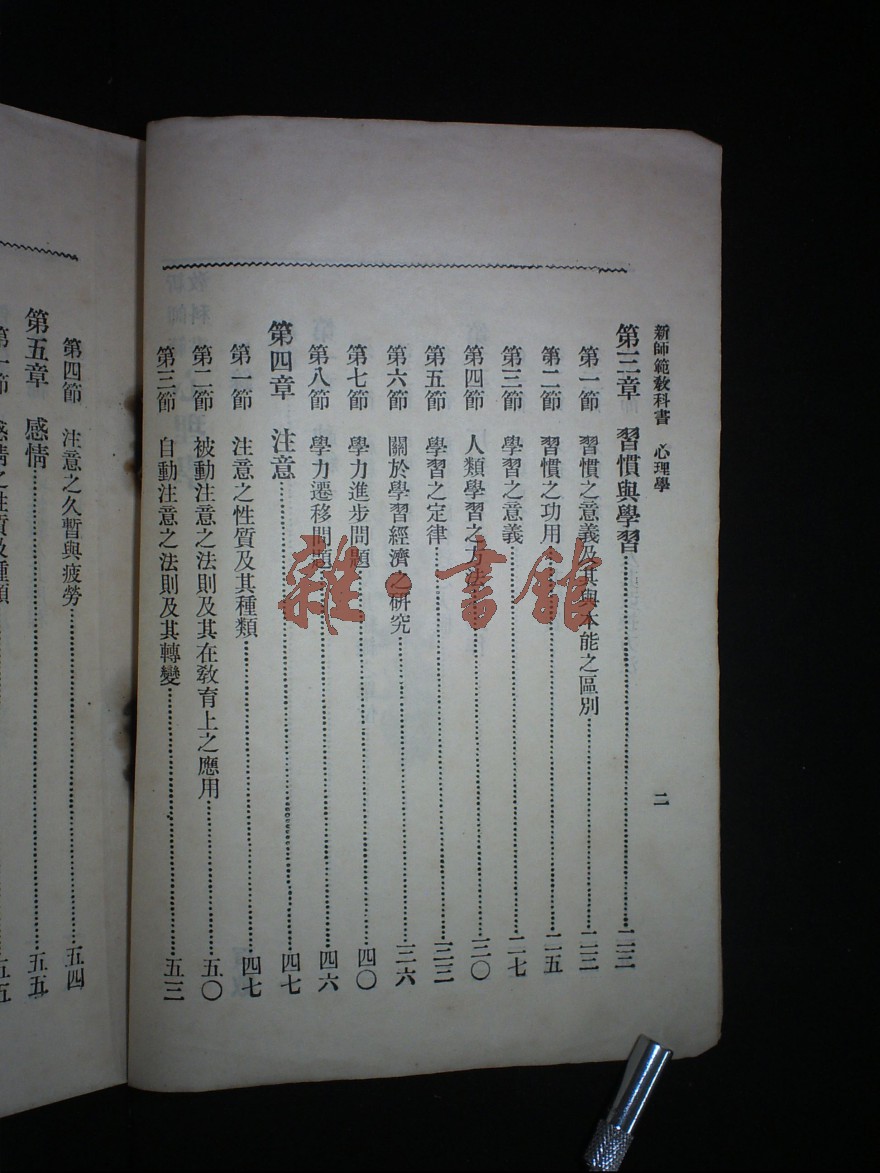 新師範教科書　心理學
二
第三章　習慣與學習……二三
第一節　習慣之意義及其與本能之區別……二三
第二節　習慣之功用……二五
第三節　學習之意義……二七
第四節　人類學習之方法……三〇
第五節　學習之定律……三三
第六節　關於學習經濟之研究……三六
第七節　學力進步問題……四〇
第八節　學力遷移問題……四六
第四章　注意……四七
第一節　注意之性質及其種類……四七
第二節　被動注意之法則及其在教育上之應用……五〇
第三節　自動注意之法則及其轉變……五三
第四節　注意之久暫與疲勞……五四
第五章　感情……五五
第一節　感情之性質及種類……五五
雜·書館